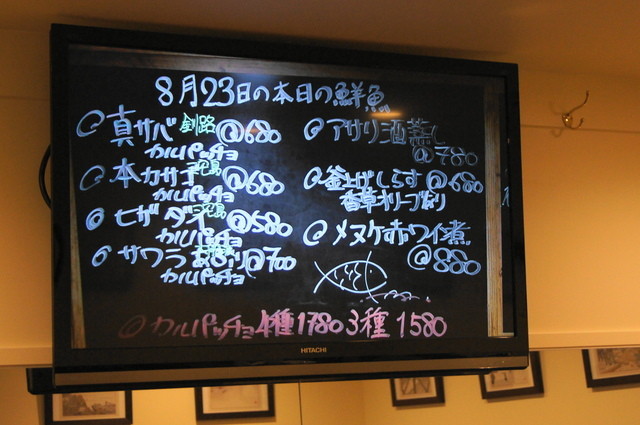 8月23日の本日の鮮魚
@真サバ 釧路 @680
カルパッチョ
@本カサゴ @680
カルパッチョ
@ヒザダイ @580
カルパッチョ
@サワラ あぶり@700
カルパッチョ
@アサリ酒蒸し
@780
@釜上げしらす@680
香草オリーブ
@メヌケ赤ワイン煮
@880
@カルパッチョ4種1780 3種1580
HITACHI